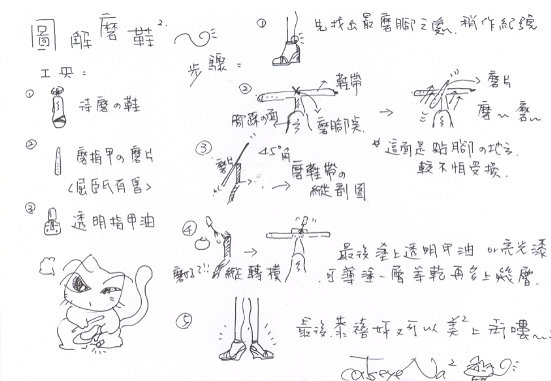 圖解磨鞋²
工具：
① 待磨の鞋
② 磨指甲の磨片
<屈臣氏有售>
③ 透明指甲油
步驟：
① 先找出最磨腳之處，稍作紀錄
② 鞋帶
腳踩の面
磨腳處
磨片
磨～磨～
*這面是貼腳の地方
較不怕受損
③ 磨片
45°角
磨鞋帶の
縱剖圖
④ 磨好了!!
縱轉橫
最後塗上透明甲油 or 亮光漆
可薄塗一層等乾再多上幾層
⑤ 最後靠穩好又可以美²上街嘍～
catseyeNa²